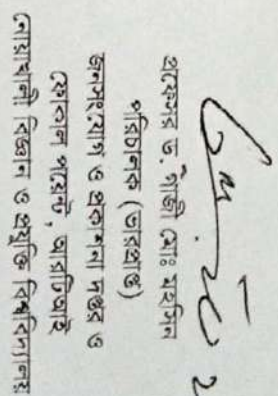 প্রফেসর ড. গাজী মোঃ মহসিন
পরিচালক (ভারপ্রাপ্ত)
জনসংযোগ ও প্রকাশনা দপ্তর ও
ফোকাল পয়েন্ট, আরটিআই
নোয়াখালী বিজ্ঞান ও প্রযুক্তি বিশ্ববিদ্যালয়